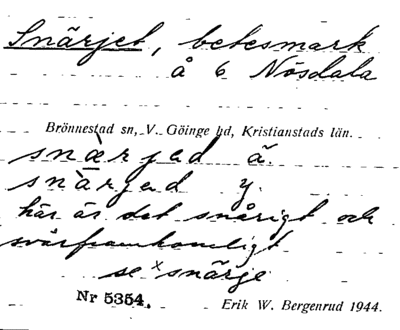 Snärjet, betesmark
å 6 Nösdala
Brönnestad sn, V. Göinge hd, Kristianstads län.
snærjad ä.
snärjad y.
här är det snårigt och
svårframkomligt
se ˣsnärje
Nr 5354.
Erik W. Bergenrud 1944.